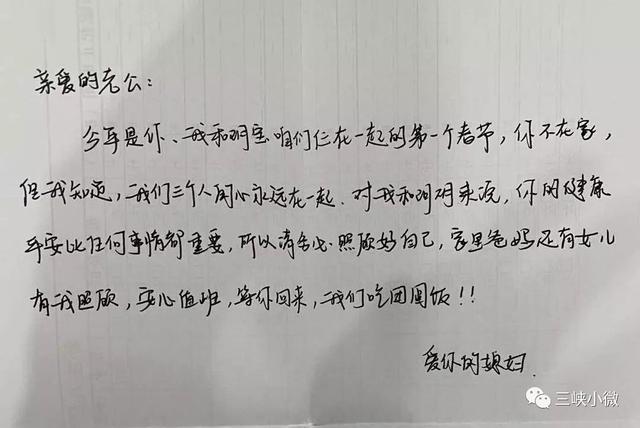 亲爱的老公：
今年是你、我和玥宝咱们仨在一起的第一个春节，你不在家，
但我知道，我们三个人的心永远在一起．对我和玥玥来说，你的健康
平安比任何事情都重要，所以请务必照顾好自己，家里爸妈还有女儿
有我照顾，安心值班，等你回来，我们吃团圆饭！！
爱你的媳妇．
三峡小微